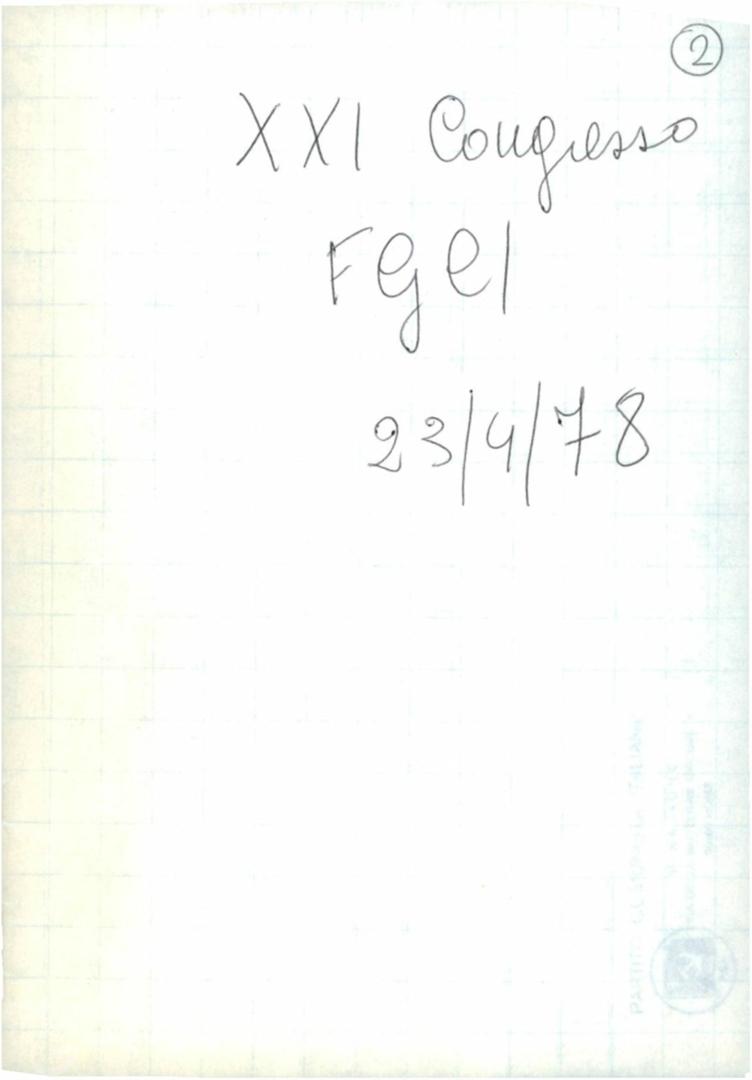 2
XXI Congresso
FGCI
23/4/78
PARTITO COMUNISTA ITALIANO